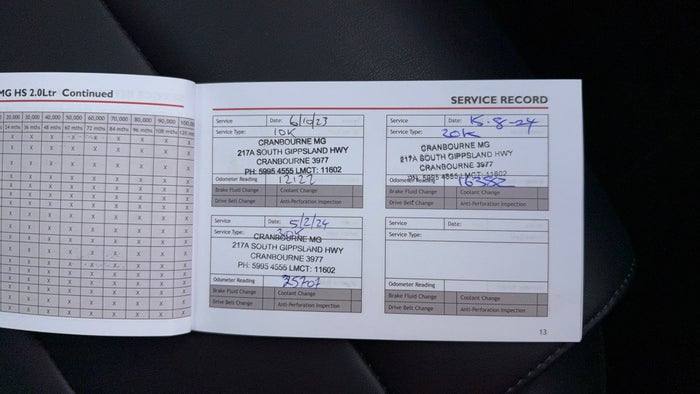 MG HS 2.0Ltr Continued
20,000 30,000 40,000 50,000 60,000 70,000 80,000 90,000 100,000
24 mths 36 mths 48 mths 60 mths 72 mths 84 mths 96 mths 108 mths 120
SERVICE RECORD
Service Date: 6/10/23
Service Type: 10K
CRANBOURNE MG
217A SOUTH GIPPSLAND HWY
CRANBOURNE 3977
PH: 5995 4555 LMCT: 11602
Odometer Reading 12127
Brake Fluid Change Coolant Change
Drive Belt Change Anti-Perforation Inspection
Service Date: 5/2/24
Service Type: 20K
CRANBOURNE MG
217A SOUTH GIPPSLAND HWY
CRANBOURNE 3977
PH: 5995 4555 LMCT: 11602
Odometer Reading 25707
Brake Fluid Change Coolant Change
Drive Belt Change Anti-Perforation Inspection
Service Date: 15-8-24
Service Type: 20K
CRANBOURNE MG
217A SOUTH GIPPSLAND HWY
CRANBOURNE 3977
PH: 5995 4555 LMCT: 11602
Odometer Reading
Brake Fluid Change Coolant Change
Drive Belt Change Anti-Perforation Inspection
Service Date:
Service Type:
Odometer Reading
Brake Fluid Change Coolant Change
Drive Belt Change Anti-Perforation Inspection
13